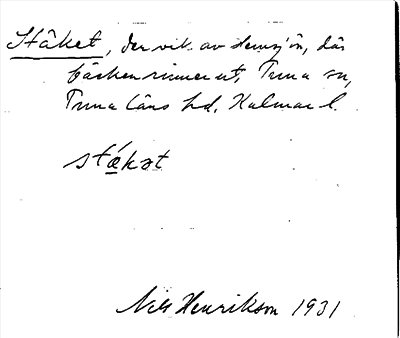 Ståket, den vik av Hemsjön, där
bäcken rinner ut, Tuna sn,
Tuna läns hd, Kalmar l.
stǻkət
Nils Henrikson 1931